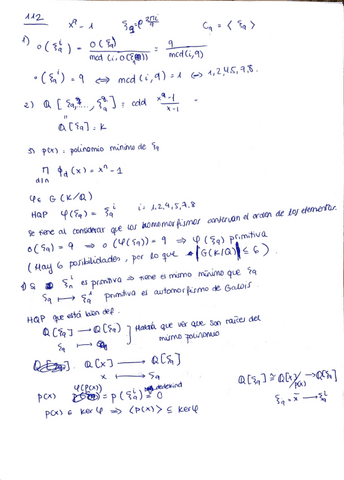 112
x⁹ - 1    ξ₉ = e^{2πi/9}    C₉ = ⟨ξ₉⟩
1)
o(ξ₉ⁱ) = o(ξ₉) / mcd(i, o(ξ₉)) = 9 / mcd(i,9)
o(ξ₉ⁱ) = 9 ⟺ mcd(i,9) = 1 ⟺ 1,2,4,5,7,8.
2) Q[ξ₉, ..., ] = cdd x⁹-1 / x-1 =
Q[ξ₉] = K
3) p(x) = polinomio mínimo de ξ₉
∏_{d|n} ϕ_d(x) = xⁿ - 1
φ ∈ G(K/Q)
HQP φ(ξ₉) = ξ₉ⁱ    i = 1,2,4,5,7,8
Se tiene al considerar que los homomorfismos conservan el orden de los elementos.
o(ξ₉) = 9 ⟹ o(φ(ξ₉)) = 9 ⟹ φ(ξ₉) primitiva
(Hay 6 posibilidades, por lo que |G(K/Q)| ≤ 6)
Si ξ₉ⁱ es primitiva ⟹ tiene el mismo mínimo que ξ₉
ξ₉ ⟼ ξ₉ⁱ primitiva es automorfismo de Galois.
HQP que está bien def.
Q[ξ₉] → Q[ξ₉]
ξ₉ → ξ₉ⁱ
Habrá que ver que son raíces del
mismo polinomio
Q[x] ⟶ Q[ξ₉]
x ⟼ ξ₉
Q[ξ₉] ≅ Q[x]/p(x) → Q[ξ₉]
ξ₉ = x̄ ⟶ ξ₉ⁱ
p(x)    φ(p(x)) = p(ξ₉ⁱ) = 0    Dedekind
p(x) ∈ ker φ ⟹ ⟨p(x)⟩ ≤ ker φ